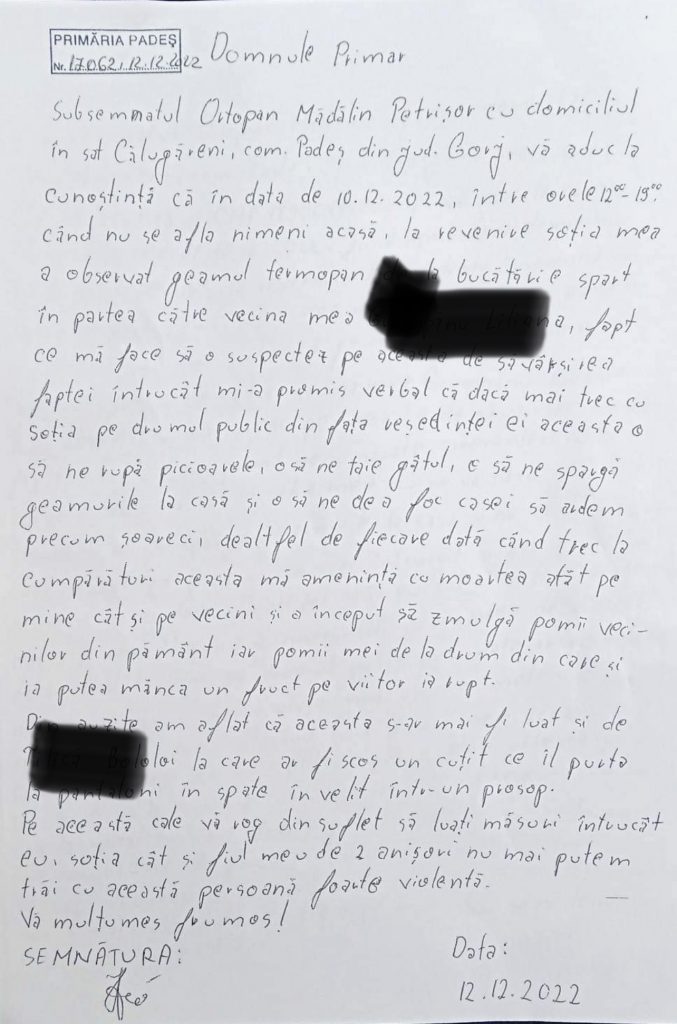 PRIMĂRIA PADEȘ
Nr. 17062, 12.12.2022
Domnule Primar
Subsemnatul Ortopan Mădălin Petrișor cu domiciliul
în sat Călugăreni, com. Padeș din jud. Gorj, vă aduc la
cunoștință că în data de 10.12.2022, între orele 12⁰⁰-19⁰⁰.
când nu se afla nimeni acasă, la revenire soția mea
a observat geamul termopan bucătărie spart
în partea către vecina mea , fapt
ce mă face să o suspectez pe aceasta de săvârșirea
faptei întrucât mi-a promis verbal că dacă mai trec cu
soția pe drumul public din fața reședinței ei aceasta o
să ne rupă picioarele, o să ne taie gâtul, o să ne spargă
geamurile la casă și o să ne dea foc casei să ardem
precum șoareci, dealtfel de fiecare dată când trec la
cumpărături aceasta mă amenință cu moartea atât pe
mine cât și pe vecini și a început să zmulgă pomii veci-
nilor din pământ iar pomii mei de la drum din care și
ia putea mânca un fruct pe viitor ia rupt.
Din auzite am aflat că aceasta s-ar mai fi luat și de
la care ar fi scos un cuțit ce îl purta
la pantaloni în spate învelit într-un prosop.
Pe această cale vă rog din suflet să luați măsuri întrucât
eu, soția cât și fiul meu de 2 anișori nu mai putem
trăi cu această persoană foarte violentă.
Vă mulțumes frumos!
SEMNĂTURA:
Data:
12.12.2022